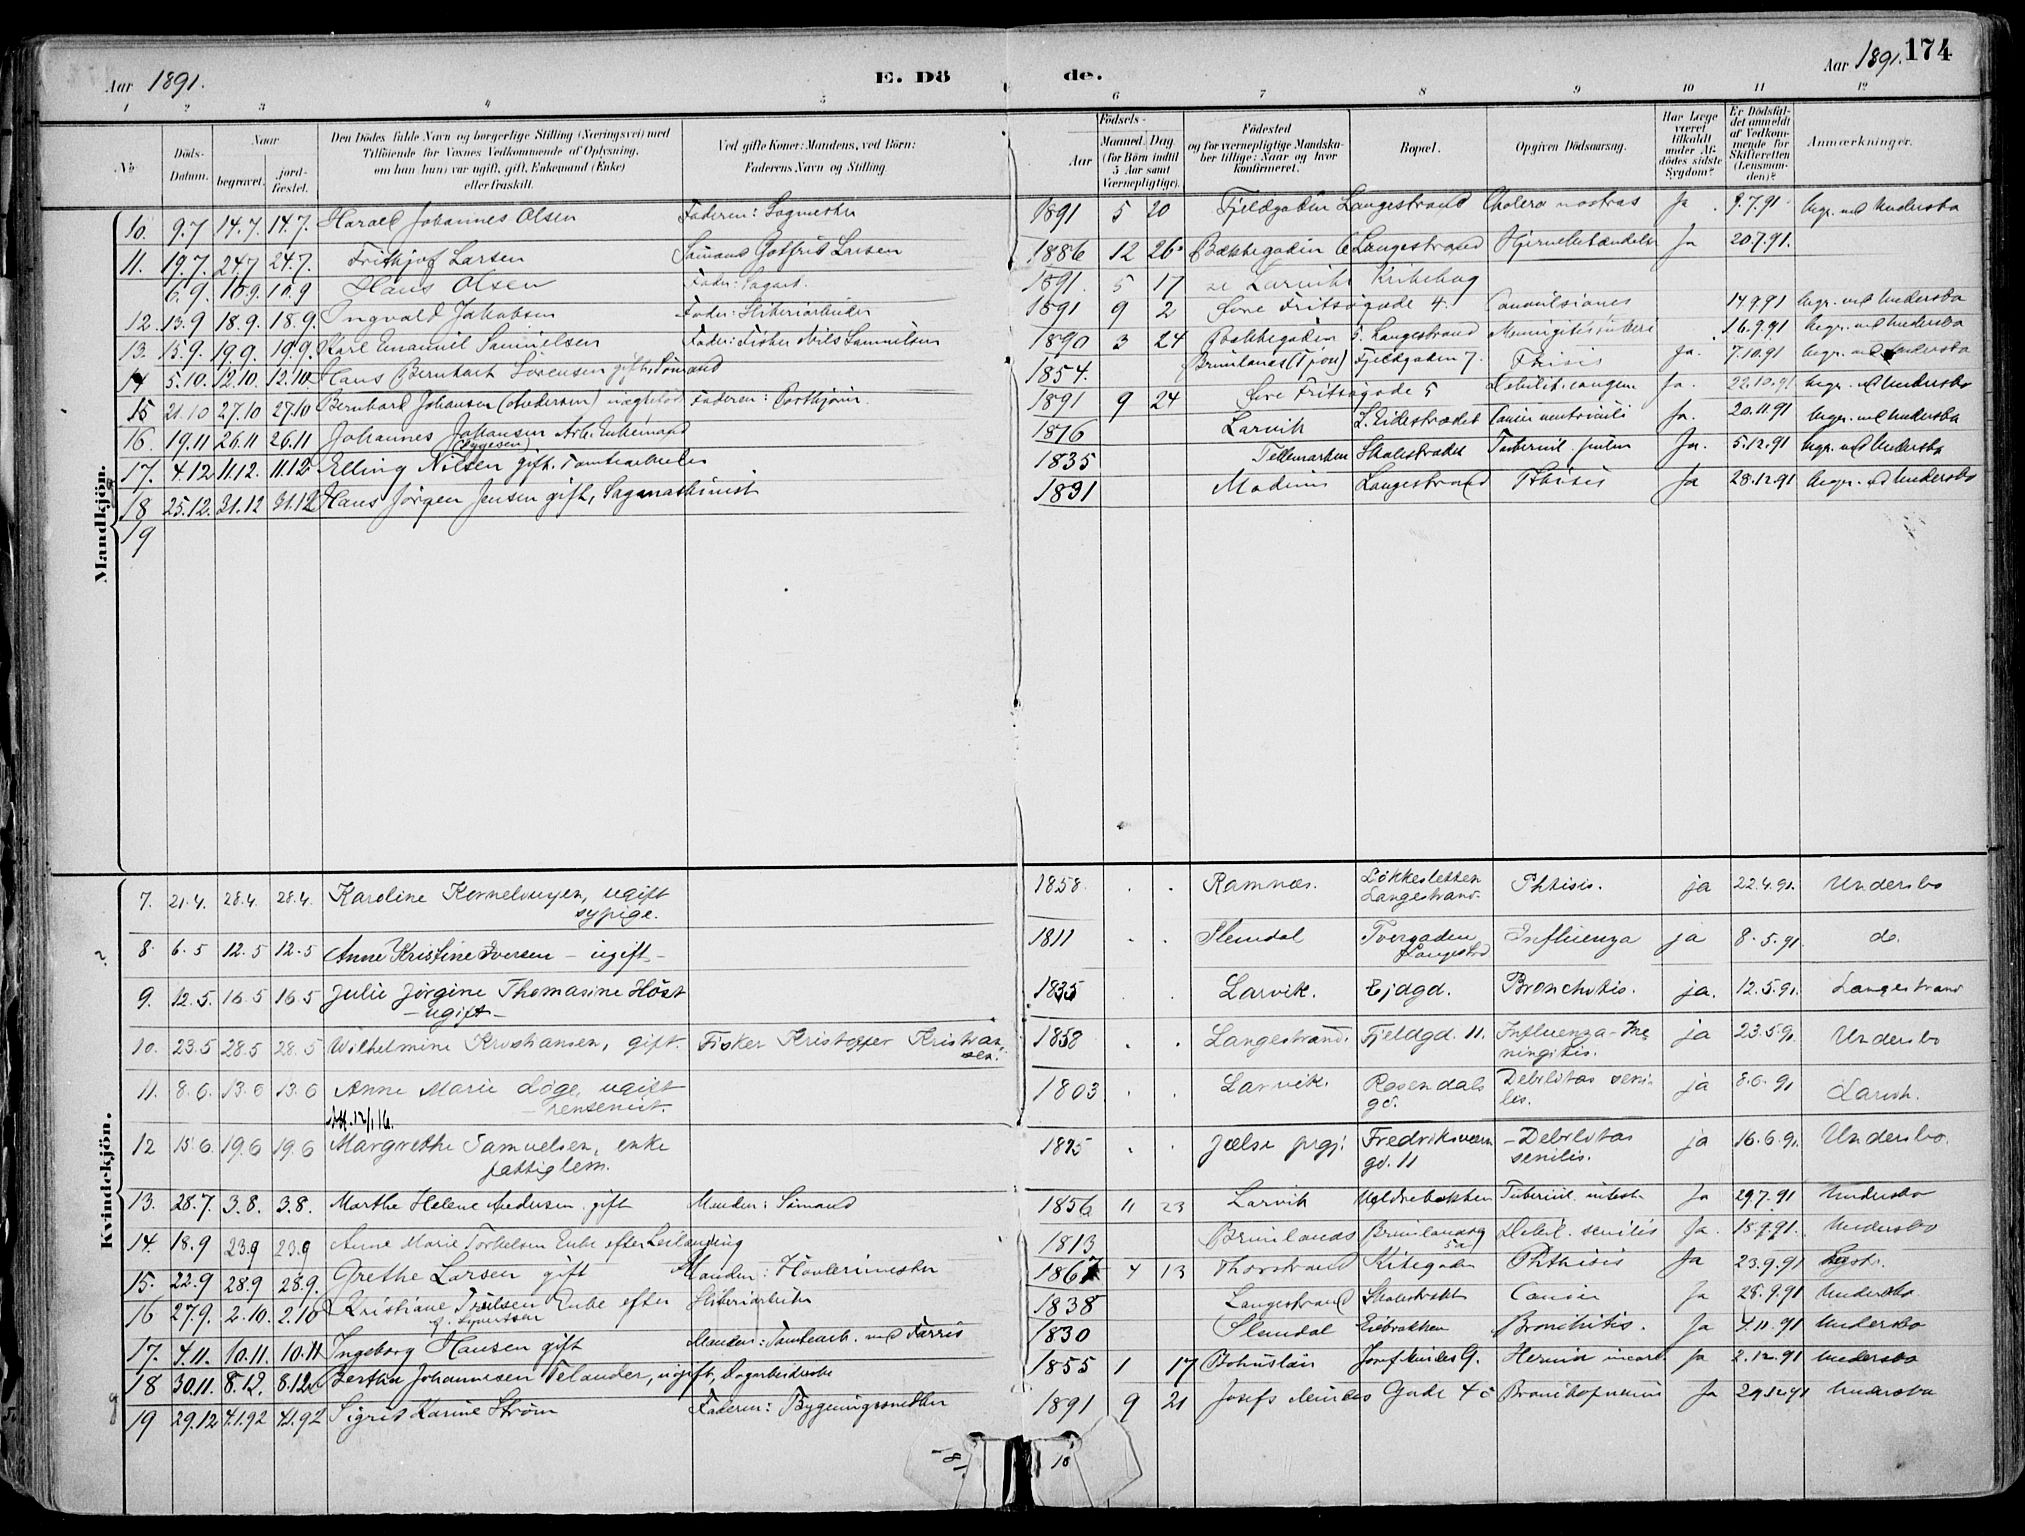 Aar 1891.
E. Dö
de.
Aar 1891. 174
1 2 3 4 5 6 7 8 9 10 11 12
No Döds-Datum. Naar begravet. jord-fæstet. Den Dödes fulde Navn og borgerlige Stilling (Næringsvei) med Tilföiende for Voxnes Vedkommende af Oplysning, om han (hun) var ugift, gift, Enkemand (Enke) eller fraskilt. Ved gifte Koner: Mandens, ved Börn: Faderens Navn og Stilling. Födsels- Aar Maaned Dag (for Börn indtil 5 Aar samt Værnepligtige). Födested og for værnepligtige Mandska-ber tillige: Naar og hvor konfirmeret. Bopæl. Opgiven Dödsaarsag. Har Læge været tilkaldt under Af-dödes sidste Sygdom? Er Dödsfal-det anmeldt af Vedkom-mende for Skifteretten (Lensman-den)? Anmærkninger.
Mandkjön.
10. 9.7 14.7. 14.7. Harald Johannes Olsen Faderen: Sagmester 1891 5 20 Fjeldgaden Langestrand Cholera nostras Ja 9.7.91 begr. ved Undersbo
11. 19.7. 24.7 24.7. Fritkjof Larsen Sömand Gotfrid Larsen 1886 12 26 Bækkegaden 6 Langestrand Ja 20.7.91.
6.9. 10.9. 10.9 Hans Olsen Fader: Sagarb. 1891. 5 17 Larviks
12. 13.9 18.9. 18.9. Ingvald Jakobsen Fader: Sliberiarbeider 1891 9 2 Övre Fritsögade 4. Convulsiones 14.9.91 begr. ved Undersbo
13. 15.9. 19.9. 19.9. Karl Emanuel Samuelsen Fader: Fisker Nils Samuelsen 1890 3 24 Bækkegaden 5. Langestrand 16.9.91 begr. ved Undersbo
14 5.10. 12.10. 12.10. Hans Bernhart Sörensen gift, Sömand 1854. Brunlanes (Tjos) Fjeldgaden 7. Thisis Ja. 7.10.91 begr. ved Undersbo
15 21.10 27.10 27.10 Bernhard Johansen (Andersen) Faderen: 1891 9 24 Övre Fritsögade 5 Debilit. congen Ja. 22.10.91 begr. ved Undersbo
16. 19.11 26.11 26.11 Johannes Johansen Arb. Enkemand 1816 Larvik L. Eikestrædet Cancer ventriculi Ja. 20.11 91 begr. ved Undersbo
(Tygesen)
17. 4.12 11.12. 11.12 Elling Nilsen gift. Tomtearbeider 1835 Tellemarken Skolestrædet Tubercul. pulm Ja. 5.12.91 begr. ved Undersbo
18 25.12. 31.12 31.12 Hans Jörgen Jensen gift, Sagmaskinist 1831 Modum Langestrand Phthisis Ja 28.12.91 begr. ved Undersbo
19
Kvindekjön.
7. 21.4. 28.4. 28.4. Karoline Korneliusen, ugift sypige. 1858. Ramnæs. Løkkesletten Langestrand. Phtisis. ja 22.4.91. Undersbo
8. 6.5 12.5 12.5 Anne Kristine Iversen - ugift - 1811 Slemdal Tvergaden Langestrd Influenza ja 8.5.91. do.
9. 12.5. 16.5 16.5 Julie Jørgine Thomasine Höst - ugift - 1835 Larvik. Ejdgd. Bronchitis. ja. 12.5.91. Langestrand
10. 23.5 28.5 28.5 Wilhelmine Kristiansen, gift. Fisker Kristoffer Kristian-sen. 1858 Langestrand. Fjeldgd. 11. Influenza - Me-ningitis. ja 23.5.91 Undersbo
11. 8.6. 13.6 13.6 Anne Marie Løge, ugift 1803 Larvik. Rosendals gd. Debilitas seni-lis. ja 8.6.91 Larvik.
12 15.6. 19.6 19.6 Margrethe Samuelsen, enke fattiglem. 1815 Jælse prgj. Fredriksværn gd. 11 - Debilitas senilis. ja 16.6.91. Undersbo.
13. 28.7. 3.8. 3.8. Marthe Helene Andersen gift Manden: Sömand 1856 11 23 Larvik Ja 29.7.91 Undersbo
14. 18.9 23.9 23.9 Anne Marie Torkelsen Enke efter Leilænding 1813 Brunlanes Brunlanesg 5a Debil. senilis Ja. 18.9.91. Undersbo
15. 22.9 28.9 28.9. Grethe Larsen gift Manden: Hövlerimester 1867 4 13 Thorstrand Kirkegaden Phthisis Ja 23.9.91
16 27.9. 2.10. 2.10 Kristiane Enke efter Sliberiarbeider 1838 Langestrand Skolestrædet Cancer Ja 28.9.91 Undersbo.
17. 4.11. 10.11. 10.11 Ingeborg Hansen gift Manden: Tomtearb. ved Farris 1830 Slemdal Bronchitis. Ja 4.11.91 Undersbo
18 30.11. 8.12. 8.12. Berthe Johannesen Telander, ugift, Dagarbeiderske 1855 1 17 Bohuslän Josefinesg. Hernia incarc. Ja 2.12.91 Undersbo
19 29.12 4.1.92 4.1.92 Sigrid Karine Ström Faderen: Bygningssnedker 1891 9 21 Gade 4 Ja 29.12.91 Undersbo
10